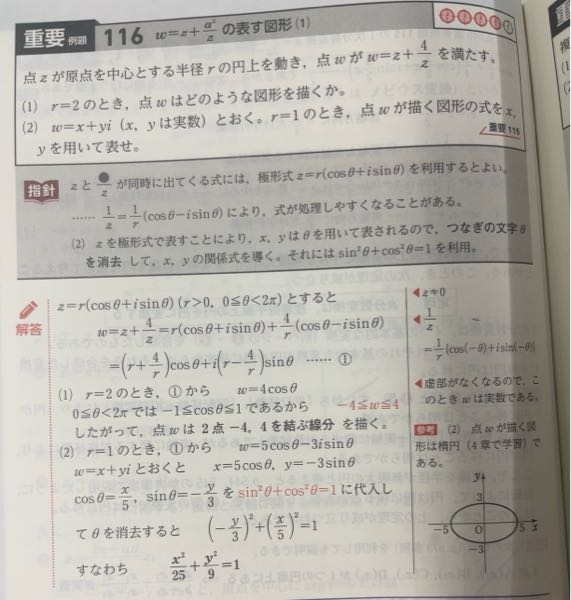 重要 例題 116 w=z+a²/z の表す図形(1)
点 z が原点を中心とする半径 r の円上を動き，点 w が w=z+4/z を満たす。
(1) r=2 のとき，点 w はどのような図形を描くか。
(2) w=x+yi (x，y は実数) とおく。r=1 のとき，点 w が描く図形の式を x，
y を用いて表せ。
重要 115
指針 z と ●/z が同時に出てくる式には，極形式 z=r(cosθ+isinθ) を利用するとよい。
…… 1/z=1/r(cosθ−isinθ) により，式が処理しやすくなることがある。
(2) z を極形式で表すことにより，x，y は θ を用いて表されるので，つなぎの文字 θ
を消去 して，x，y の関係式を導く。それには sin²θ+cos²θ=1 を利用。
解答
z=r(cosθ+isinθ) (r>0，0≦θ<2π) とすると
w=z+4/z=r(cosθ+isinθ)+4/r(cosθ−isinθ)
=(r+4/r)cosθ+i(r−4/r)sinθ …… ①
(1) r=2 のとき，① から w=4cosθ
0≦θ<2π では −1≦cosθ≦1 であるから −4≦w≦4
したがって，点 w は 2点 −4，4 を結ぶ線分 を描く。
(2) r=1 のとき，① から w=5cosθ−3isinθ
w=x+yi とおくと x=5cosθ，y=−3sinθ
cosθ=x/5，sinθ=−y/3 を sin²θ+cos²θ=1 に代入し
て θ を消去すると (−y/3)²+(x/5)²=1
すなわち x²/25+y²/9=1
◀z≠0
◀1/z
=1/r{cos(−θ)+isin(−θ)}
◀虚部がなくなるので，こ
のとき w は実数である。
参考 (2) 点 w が描く図
形は楕円(4章で学習)で
ある。
y
3
−5 O 5 x
−3